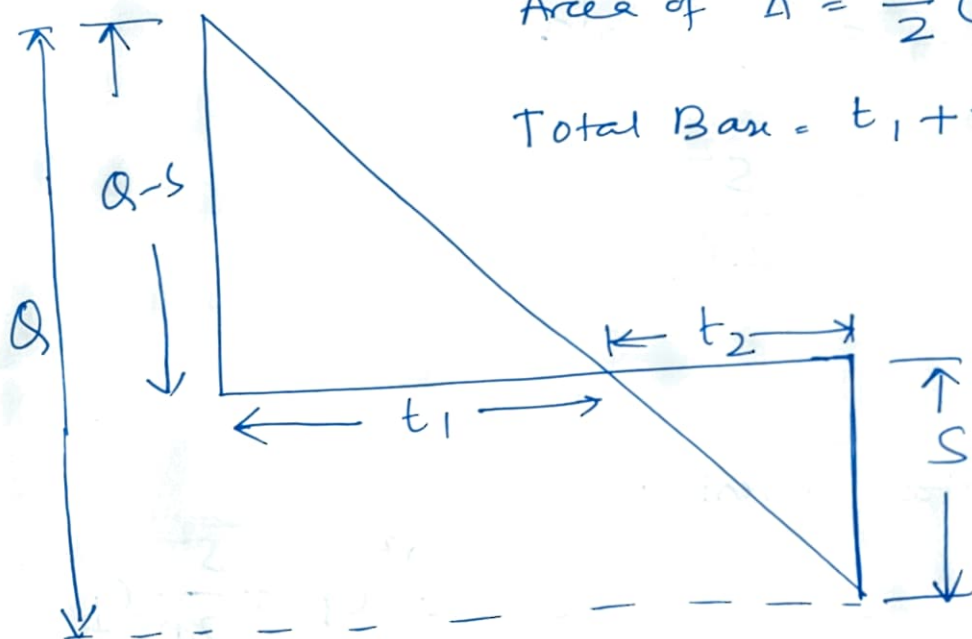 Area of Δ = 1/2 (
Total Base = t₁ +
Q-S
Q
t₂
t₁
S